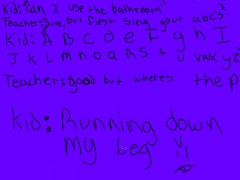 Kid: can I use the bathroom
Teacher: sure, but first sing your abcs
Kid: A B C D E F g h I
J K L M N O Q R S t u v w x y z
Teacher: good but wheres the p
Kid: Running down
my leg